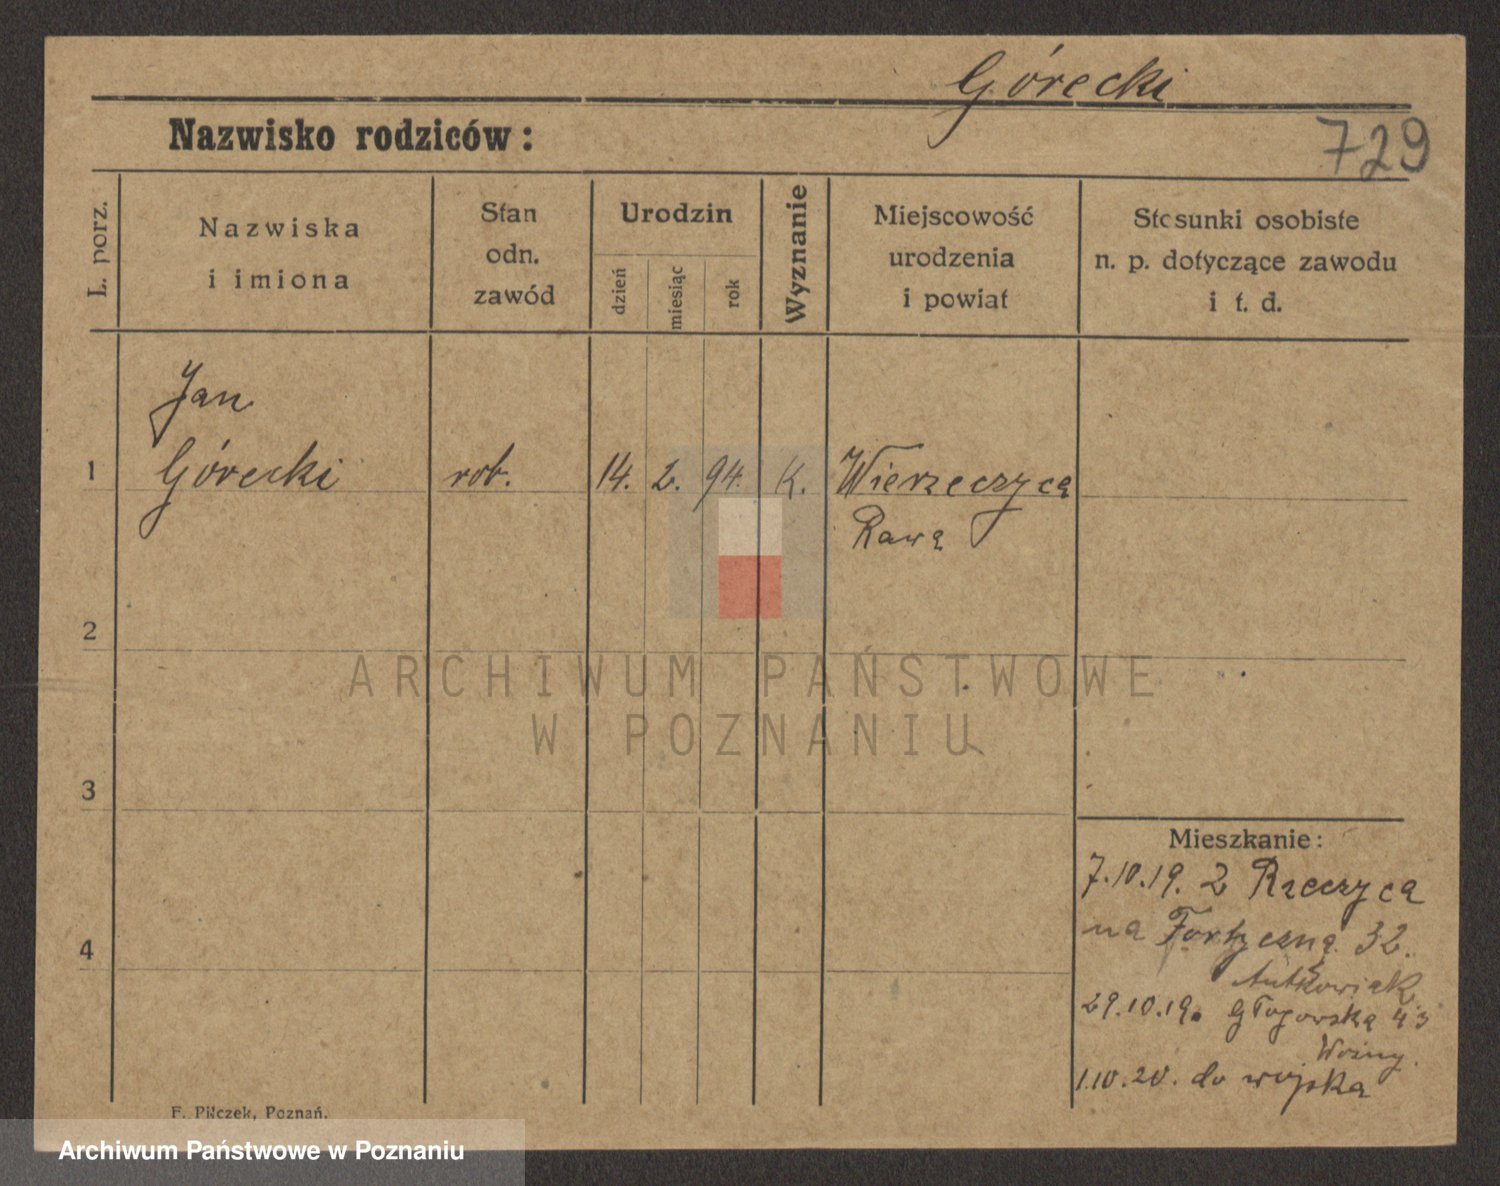 Górecki
Nazwisko rodziców:
729
L. porz.
Nazwiska
i imiona
Stan
odn.
zawód
Urodzin
dzień
miesiąc
rok
Wyznanie
Miejscowość
urodzenia
i powiat
Stosunki osobiste
n. p. dotyczące zawodu
i t. d.
Jan
1 Górecki rob. 14. 2. 94. K. Wierzeczyca
Rawa
2
ARCHIWUM PAŃSTWOWE
W POZNANIU
3
Mieszkanie:
7.10.19. z Rzeczyca
4
na Forteczną 32.
Antkowiak
29.10.19. Głogowska 43
Woźny.
1.10.20. do wojska
F. Pilczek, Poznań.
Archiwum Państwowe w Poznaniu